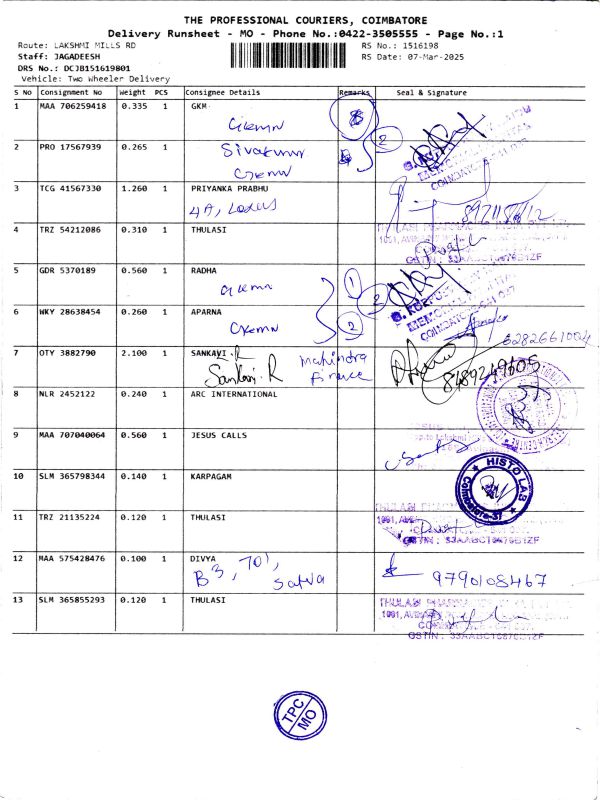 THE PROFESSIONAL COURIERS, COIMBATORE
Delivery Runsheet - MO - Phone No.:0422-3505555 - Page No.:1
Route: LAKSHMI MILLS RD RS No.: 1516198
Staff: JAGADEESH RS Date: 07-Mar-2025
DRS No.: DCJB151619801
Vehicle: Two Wheeler Delivery
S No Consignment No Weight PCS Consignee Details Remarks Seal & Signature
1 MAA 706259418 0.335 1 GKM
Gkmn
2
2 PRO 17567939 0.265 1 Sivakumar
Gkmn
MEMORIAL
COIMBATORE
3 TCG 41567330 1.260 1 PRIYANKA PRABHU
4A, Lotus
4 TRZ 54212086 0.310 1 THULASI
THULASI PHARMACIES INDIA PVT LTD
GSTIN : 33AABCT0476B1ZF
5 GDR 5370189 0.560 1 RADHA
Gkmn 1
2
6 WKY 28638454 0.260 1 APARNA
Gkmn 2
MEMORIAL
COIMBATORE
6282661004
7 OTY 3882790 2.100 1 SANKAVI.R
Sankavi.R mahindra
finance
8489249605
8 NLR 2452122 0.240 1 ARC INTERNATIONAL
9 MAA 707040064 0.560 1 JESUS CALLS
10 SLM 365798344 0.140 1 KARPAGAM
HISTO LAB
Coimbatore-37
11 TRZ 21135224 0.120 1 THULASI
THULASI
12 MAA 575428476 0.100 1 DIVYA
B3, 701,
Satva
9790108467
13 SLM 365855293 0.120 1 THULASI
THULASI PHARMACIES
TPC
MO